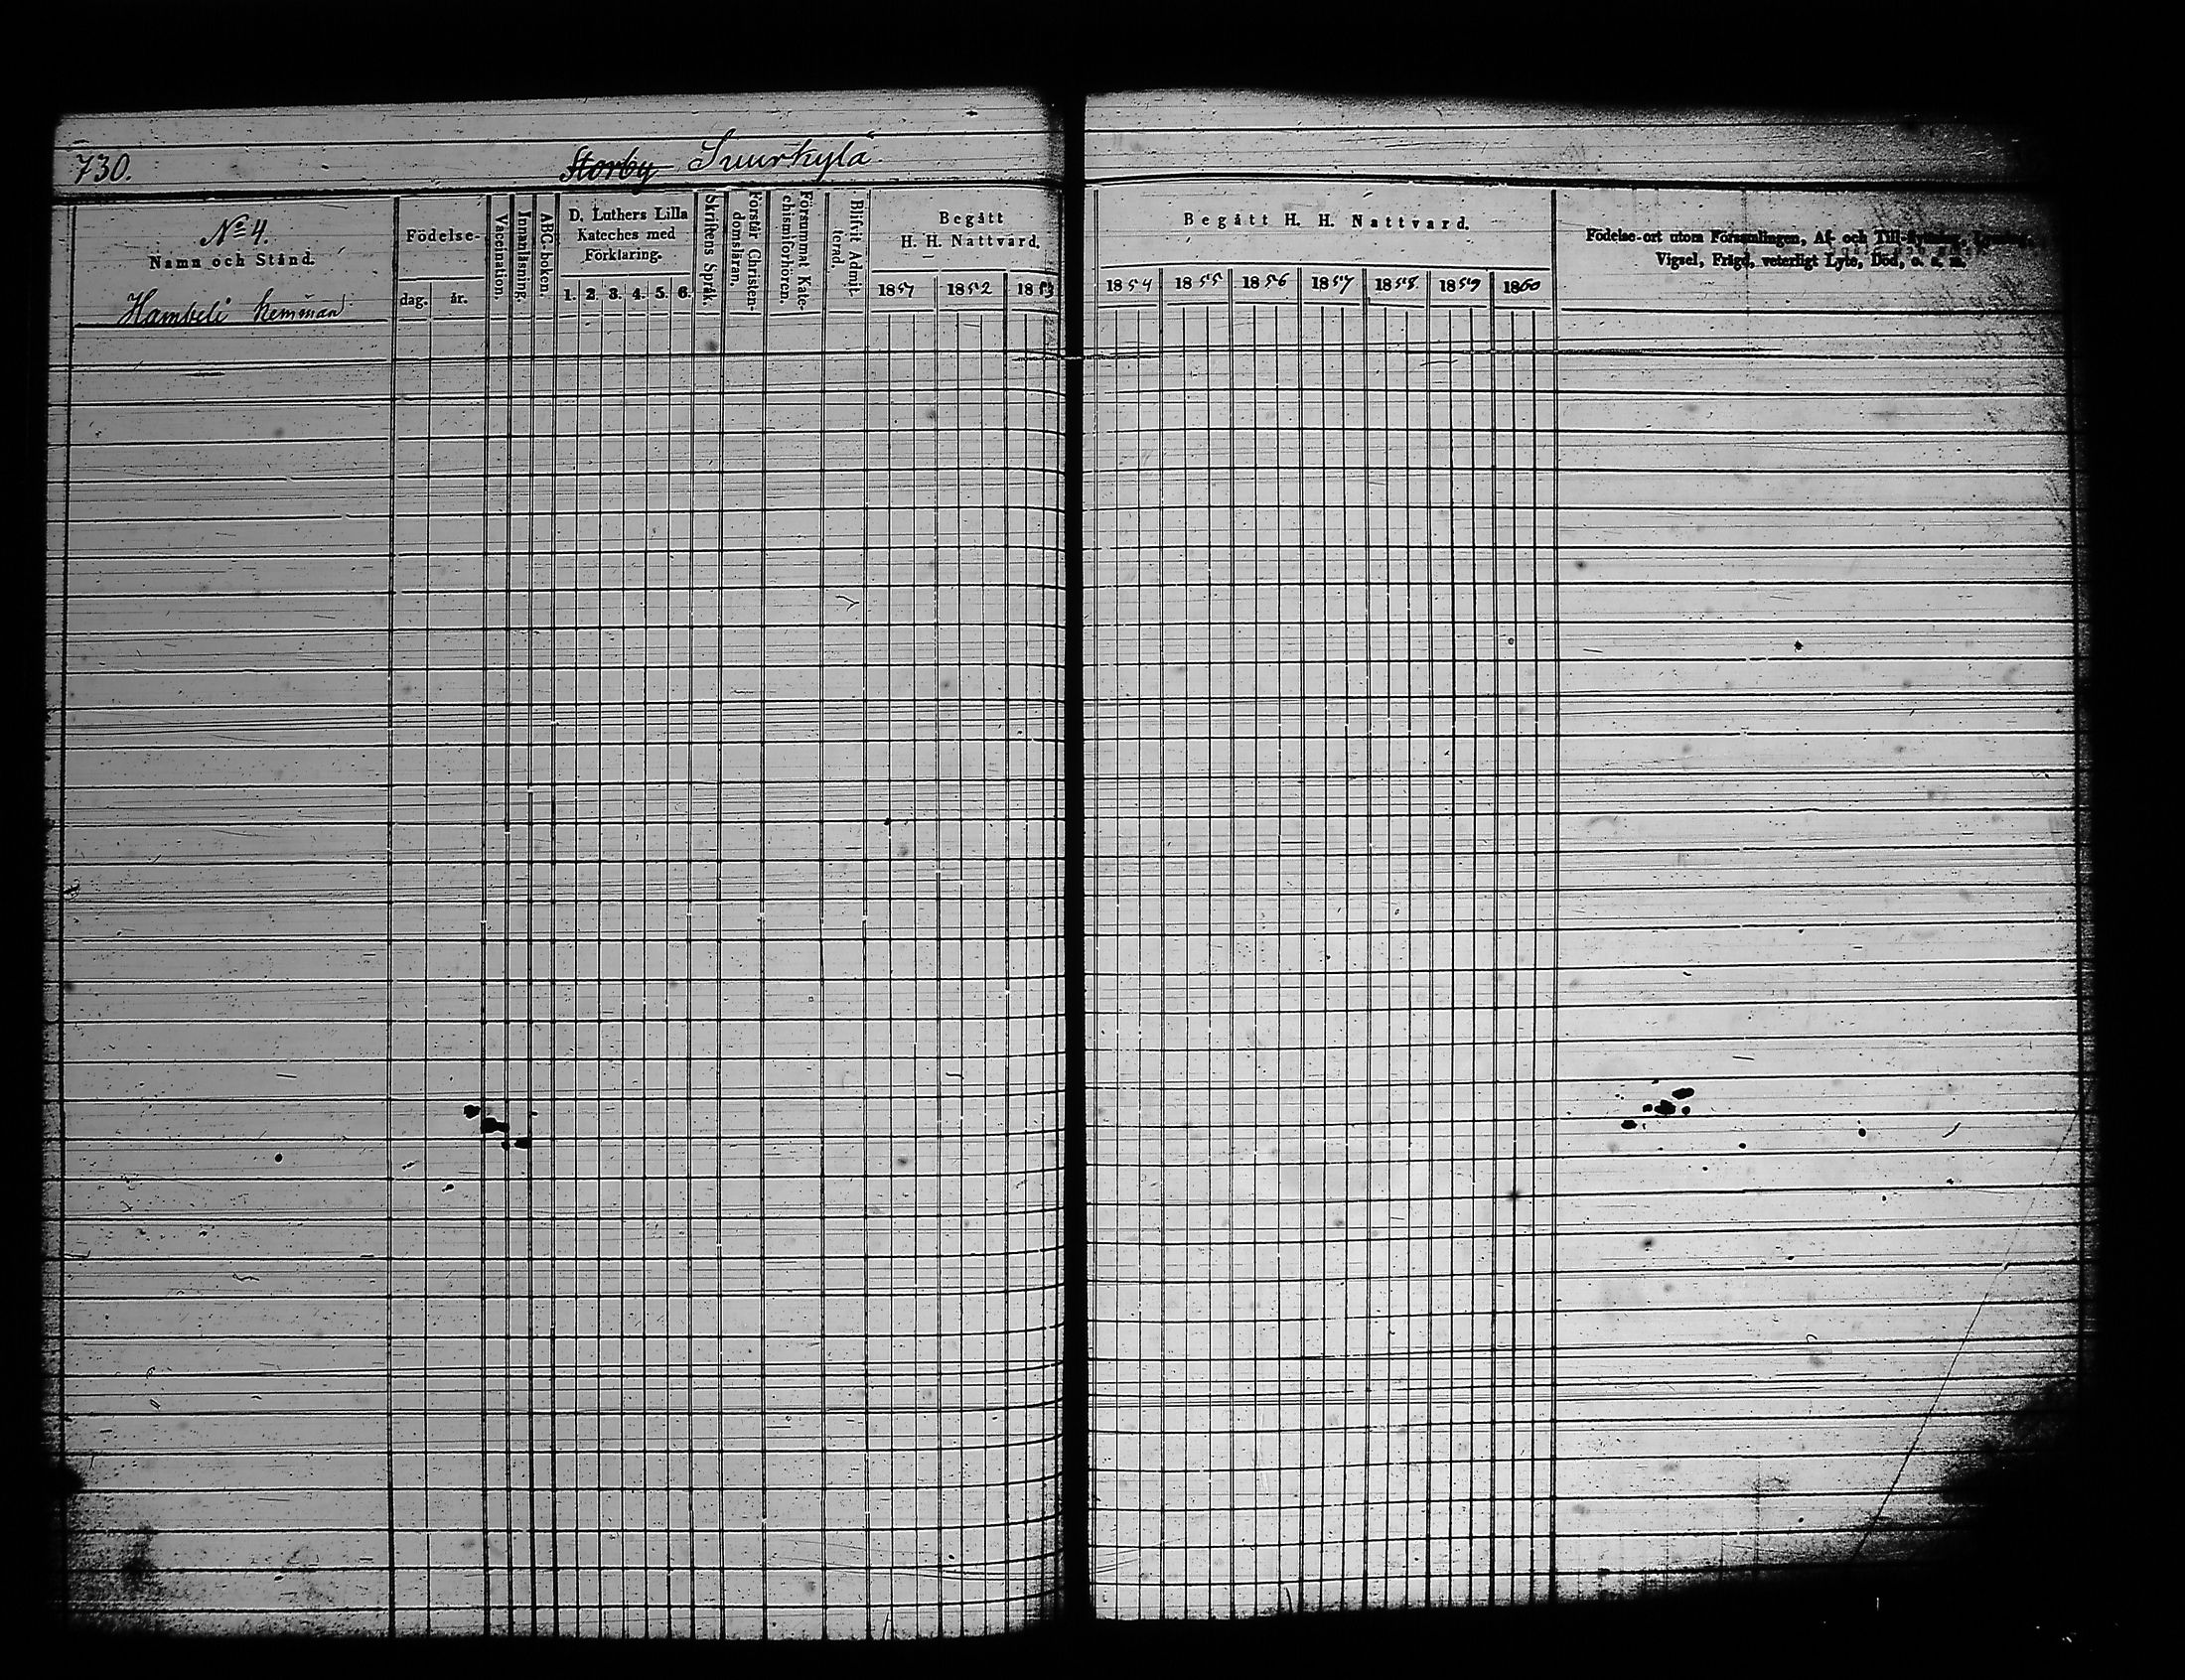 730.
Storby Suurkylä
No 4.
Namn och Stånd.
Hambeli hemman
Födelse-
dag. år.
Vaccination.
Innanläsning.
ABC-boken.
D. Luthers Lilla
Kateches med
Förklaring.
1. 2. 3. 4. 5. 6.
Skriftens Språk.
Förstår Christen-
domsläran.
Försummat Kate-
chismiförhören.
Blifvit Admit-
terad.
Begått
H. H. Nattvard.
1851 1852 1853
Begått H. H. Nattvard.
1854 1855 1856 1857 1858 1859 1860
Födelse-ort utom Församlingen, Af- och Till-flyttning,
Vigsel, Frägd, veterligt Lyte, Död, o. s. m.